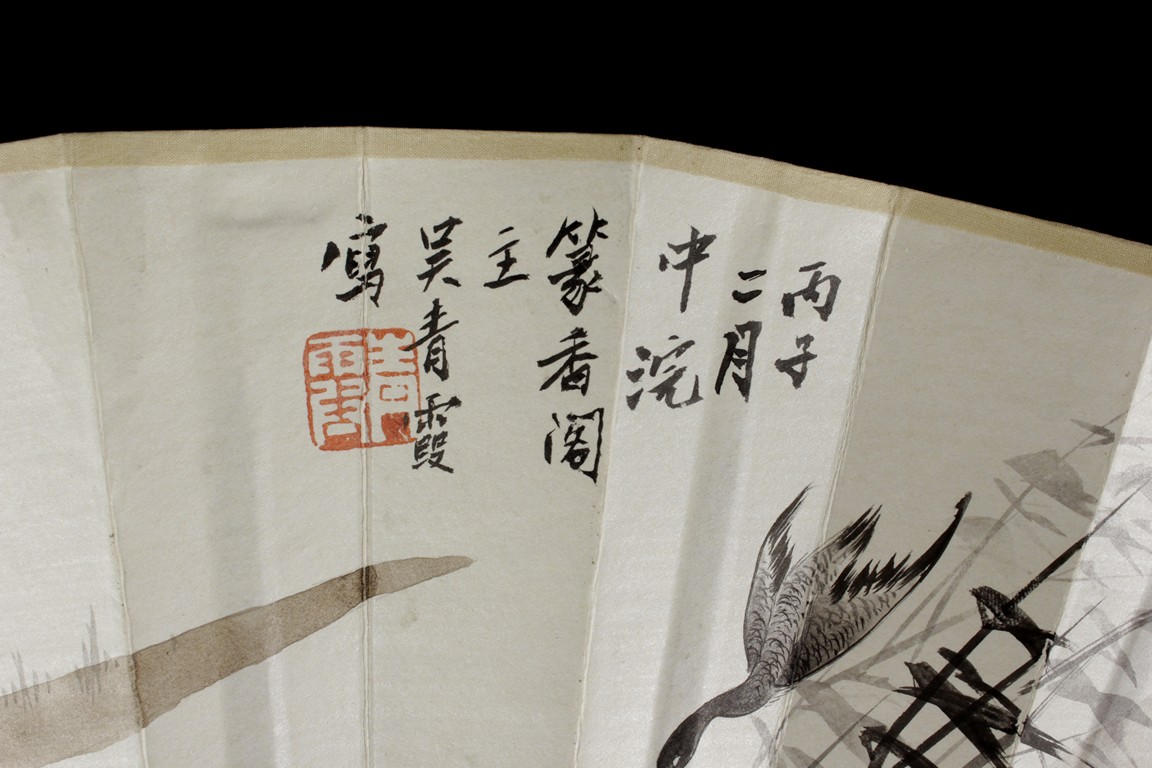 丙子
二月
中浣
篆香閣
主
吴青霞
寫
青霞